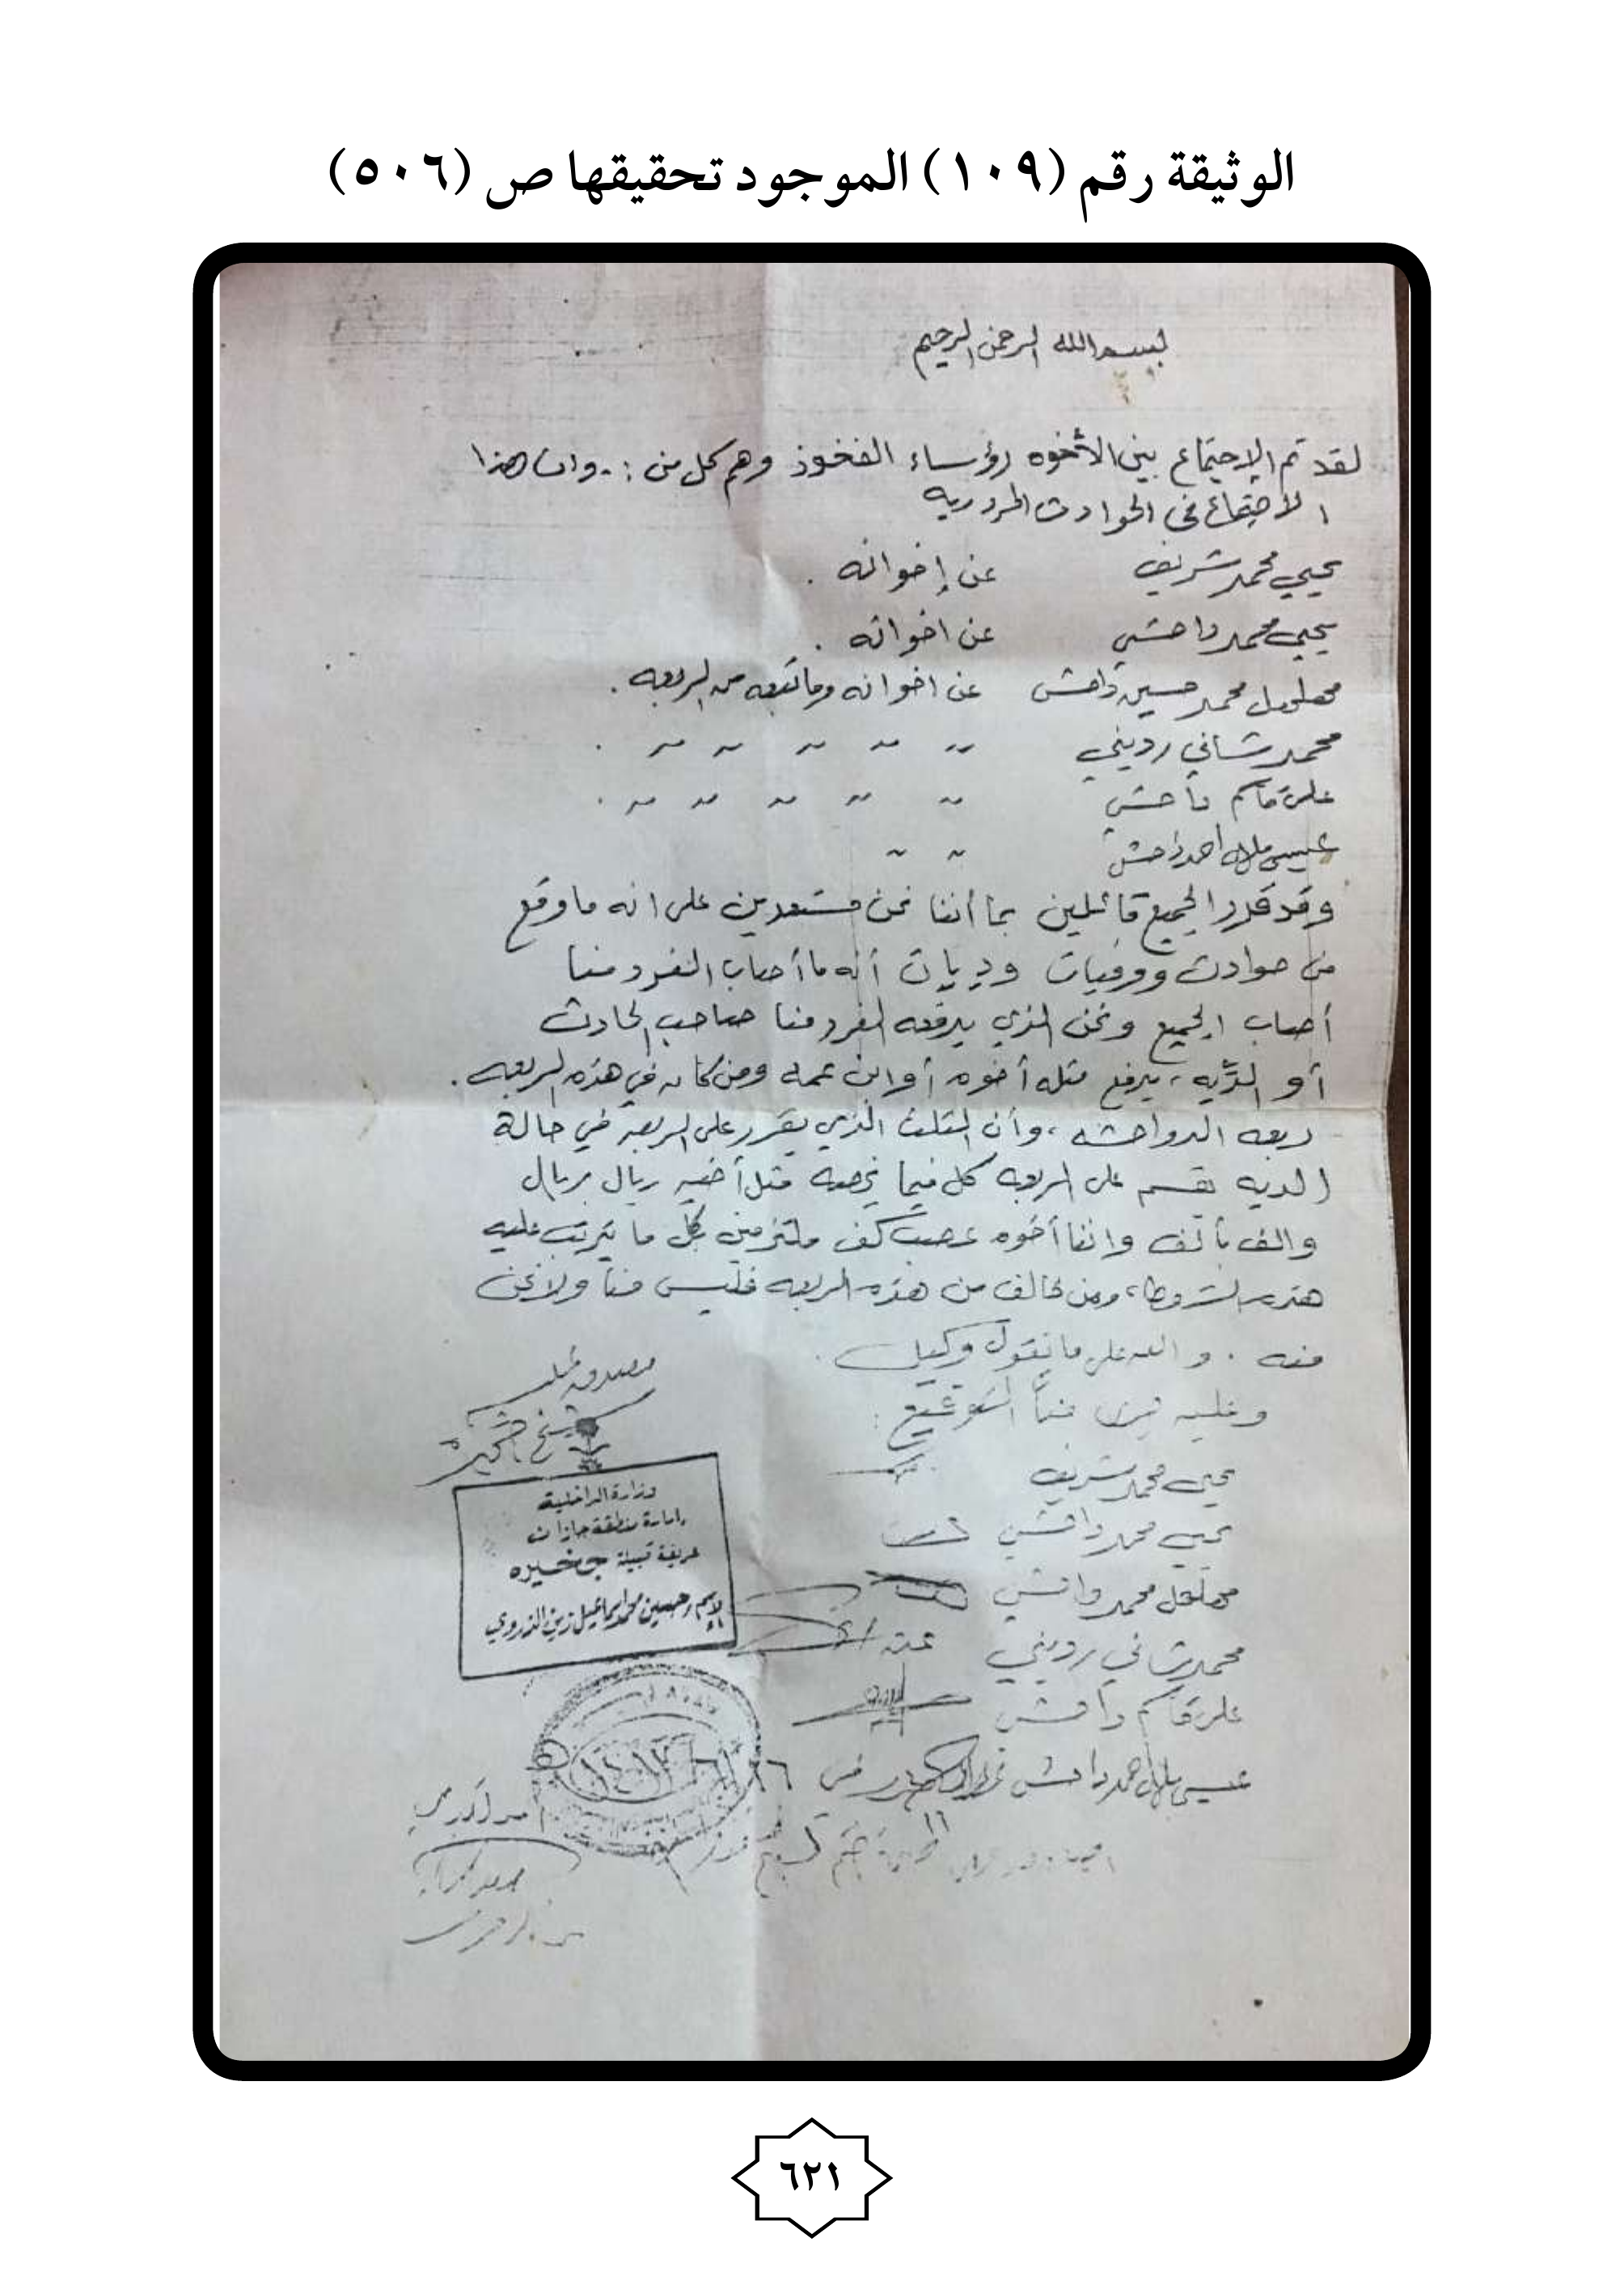 الوثيقة رقم (١٠٩) الموجود تحقيقها ص (٥٠٦)
بسم الله الرحمن الرحيم
لقد تم الإجتماع بين الأخوه رؤساء الفخوذ وهم كل من :- وان هذا
الاجتماع في الحوادث المروريه
يحيي محمد شريف عن إخوانه .
يحيي محمد داحش عن اخوانه .
محمد حسين داحش عن اخوانه وما تبعه من الربعه .
محمد شامي رديني " " " " " .
علي قاسم داحش " " " " " .
عيسى بلال احمد داحش " "
وقد قرر الجميع قائلين بما أننا نحن مستعدين على انه ما وقع
من حوادث ووفيات وديات أنه ما أصاب النفر منا
أصاب الجميع ونحن الذي يدفعه الفرد منا صاحب الحادث
أو الديّه ، يدفع مثله أخوه أو ابن عمه ومن كان في هذه الربعه .
ربعه الدواحشه ، وأن الثلث الذي يقرر على الربعه في حالة
الديه يقسم على الربعه كل فيما يخصه مثل أخيه ريال بريال
والف بألف واننا أخوه عصب كف ملتزمين بكل ما يترتب عليه
هذه الشروط ، ومن خالف من هذه الربعه فليس منا ولا نحن
منه . والله على ما نقول وكيل .
وعليه جرى منا التوقيع :
مصدق عليه
شيخ
يحيى محمد شريف
يحيى محمد داحش
محمد داحش
محمد شامي رديني عنه
علي قاسم داحش
عيسى بلال احمد داحش
وزارة الداخلية
إمارة منطقة جازان
عريفة قبيلة
الإسم / حسين محمد إسماعيل زين الزروي
٦٢١